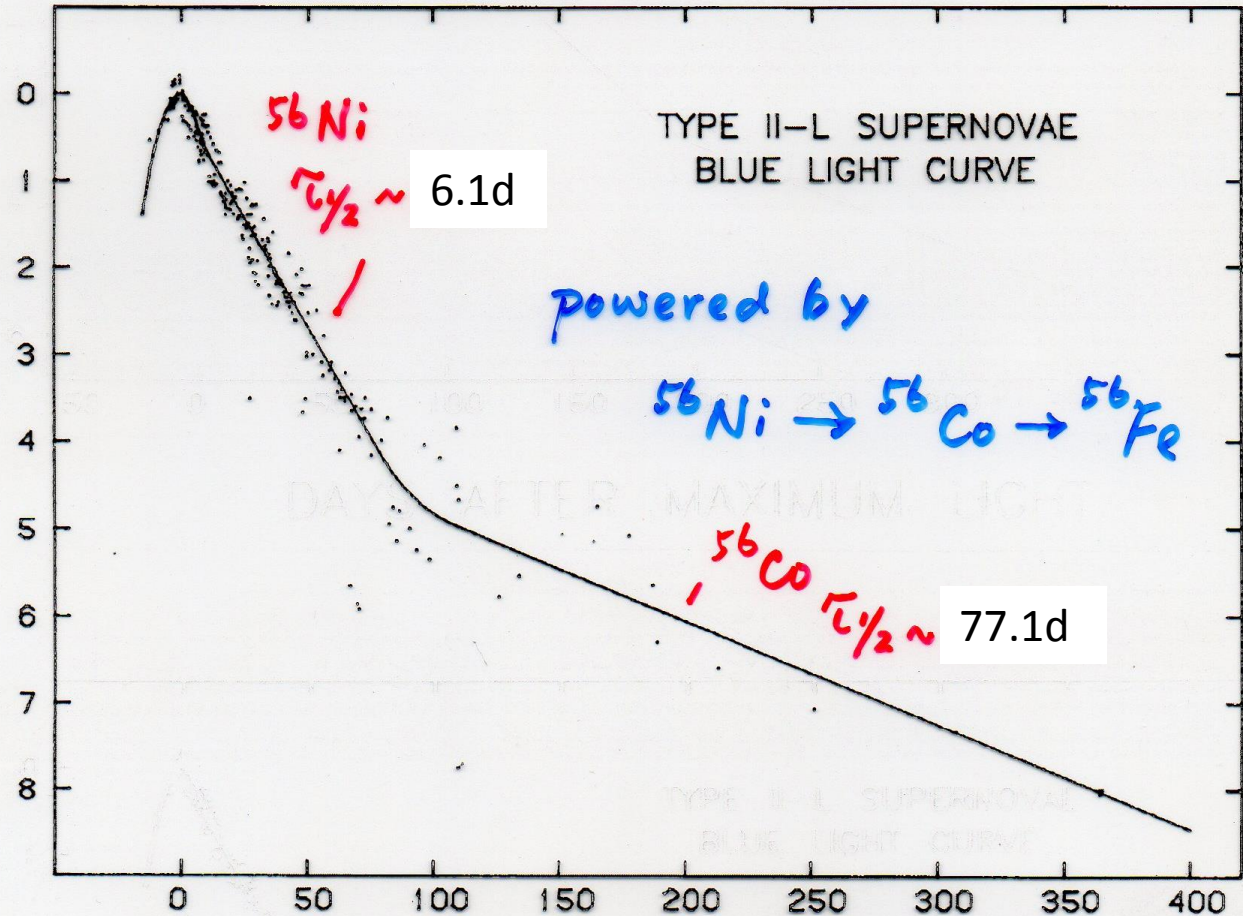 TYPE II-L SUPERNOVAE
BLUE LIGHT CURVE
⁵⁶Ni
τ₁/₂ ~ 6.1d
powered by
⁵⁶Ni → ⁵⁶Co → ⁵⁶Fe
DAYS AFTER MAXIMUM LIGHT
⁵⁶Co
τ₁/₂ ~ 77.1d
TYPE II-L SUPERNOVAE
BLUE LIGHT CURVE
0
1
2
3
4
5
6
7
8
0 50 100 150 200 250 300 350 400